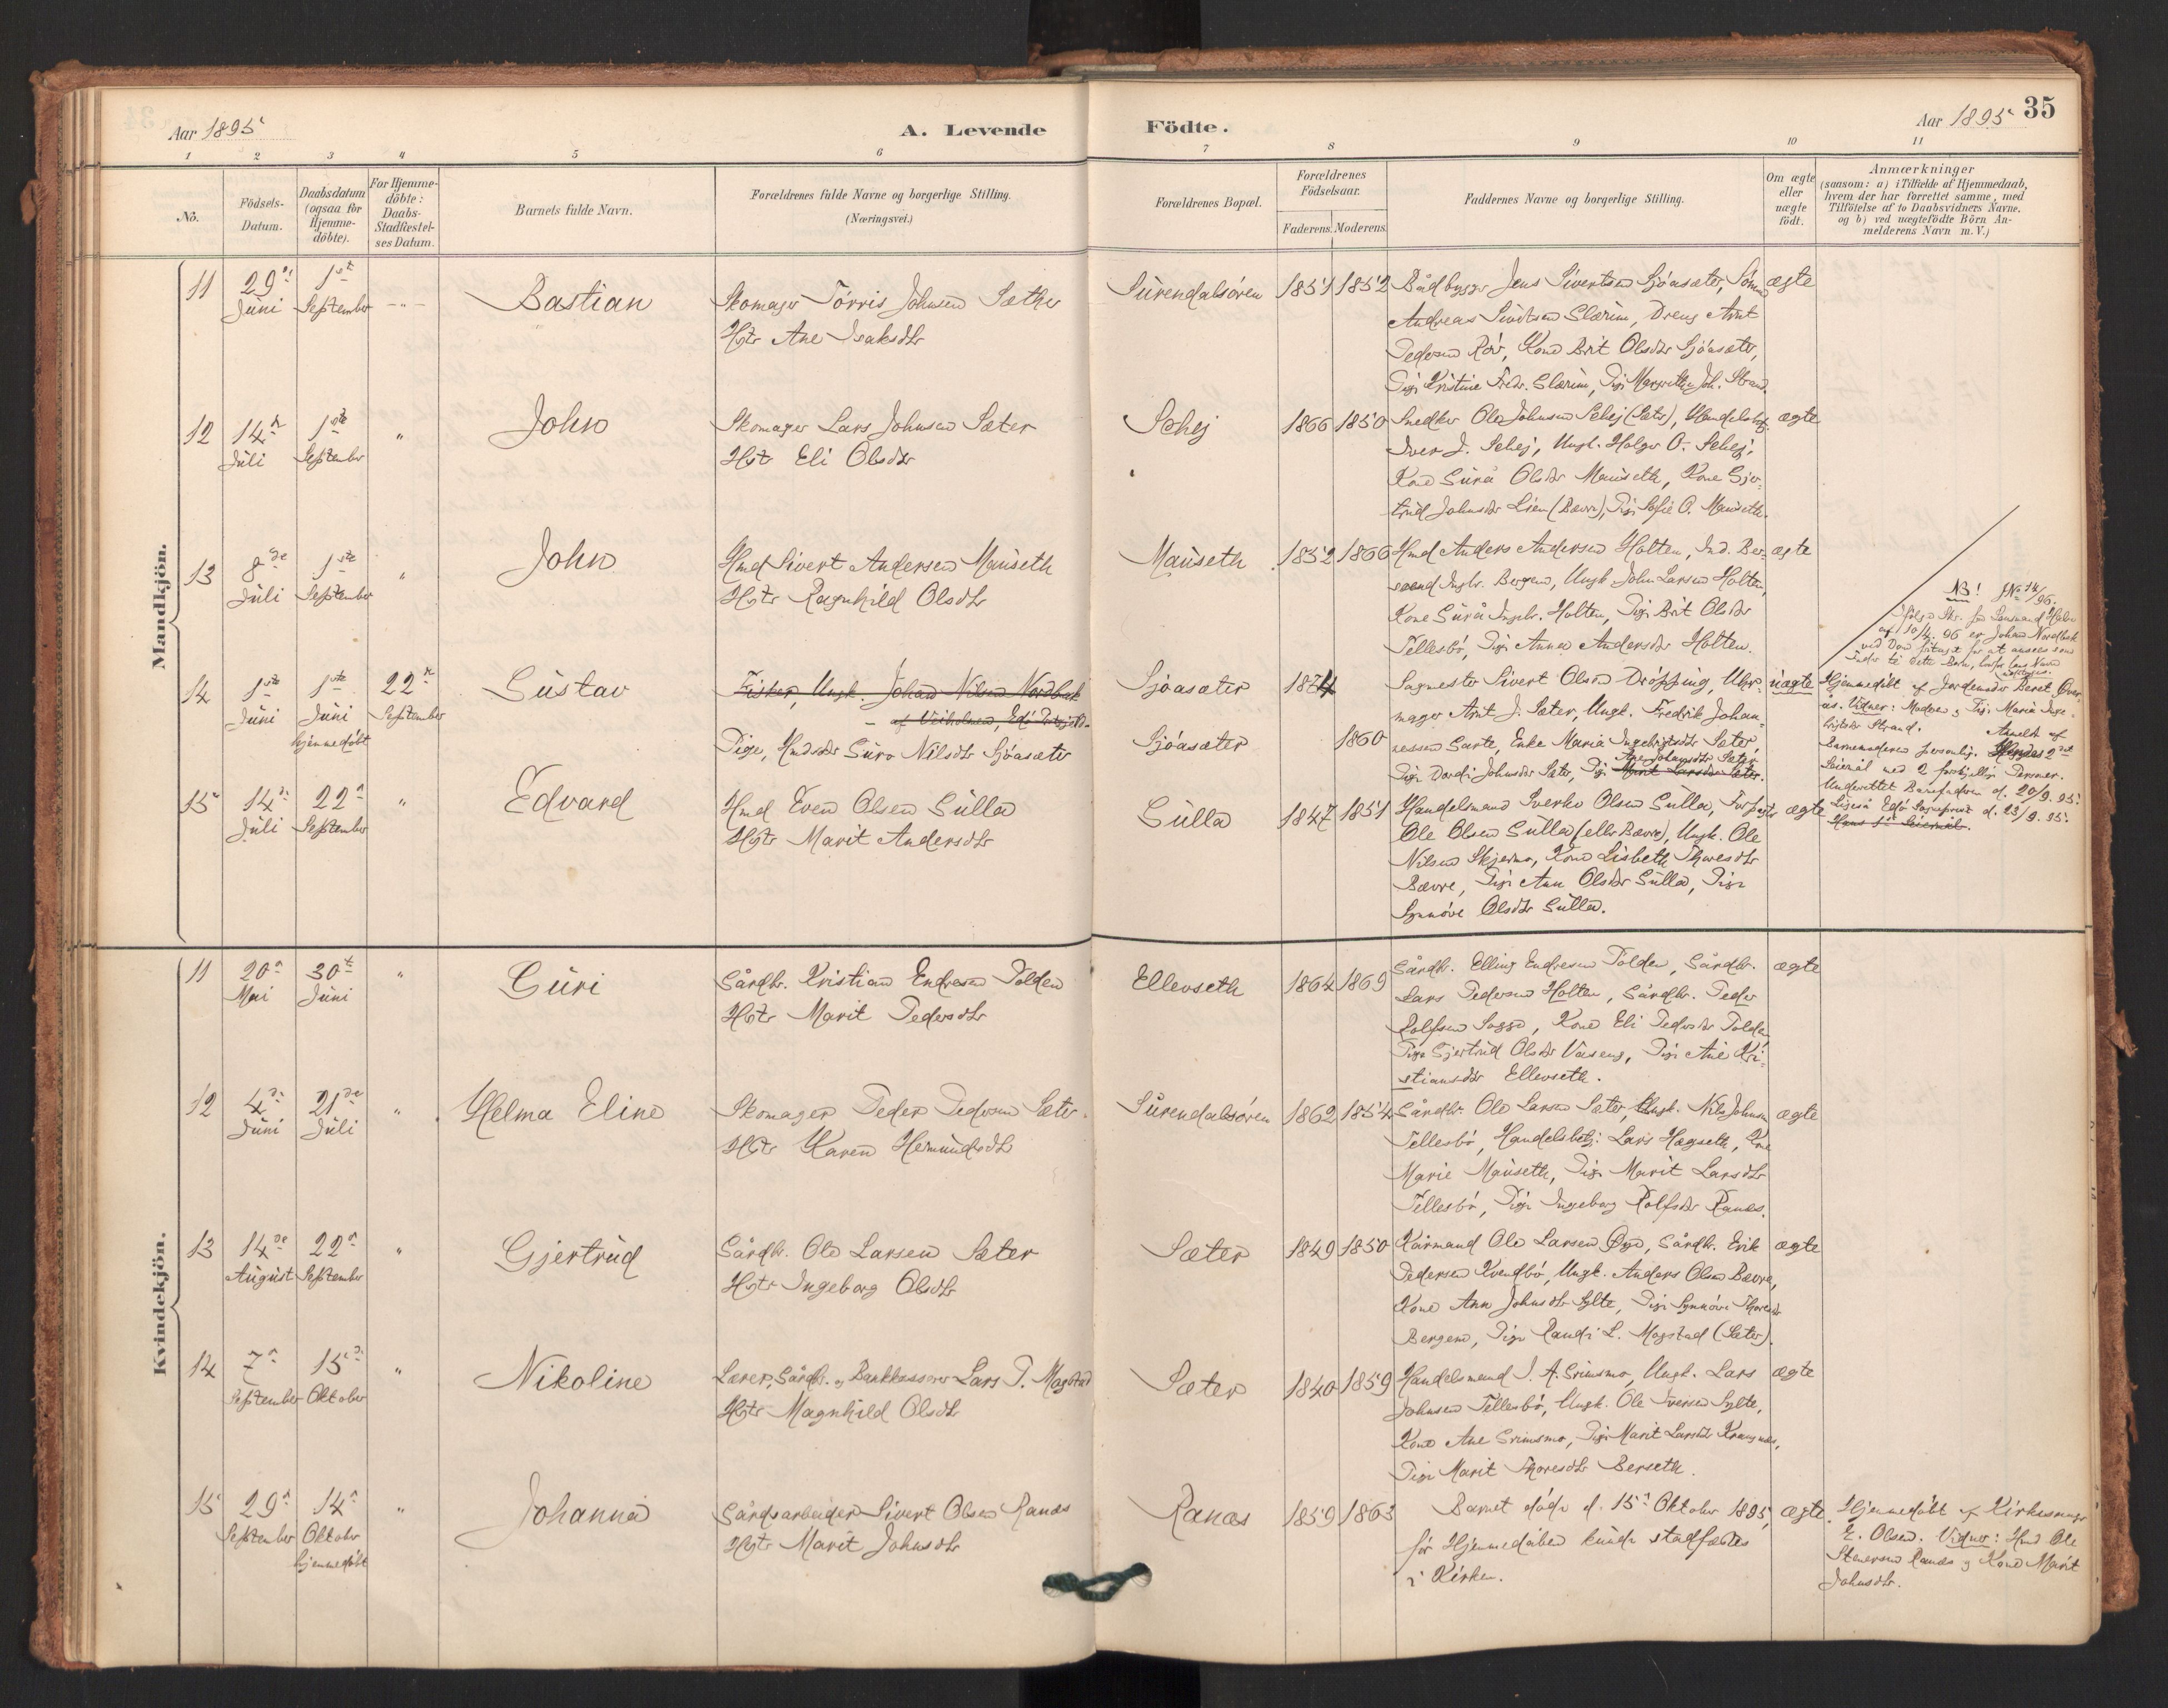 Aar 1895
A. Levende
Födte.
Aar 1895
35
1 2 3 4 5 6 7 8 9 10 11
No.
Födsels-
Datum.
Daabsdatum
(ogsaa for
Hjemme-
döbte).
For Hjemme-
döbte:
Daabs-
Stadfæstel-
ses Datum.
Barnets fulde Navn.
Forældrenes fulde Navne og borgerlige Stilling.
(Næringsvei.)
Forældrenes Bopæl.
Forældrenes
Födselsaar.
Faderens. Moderens.
Faddernes Navne og borgerlige Stilling.
Om ægte
eller
uægte
födt.
Anmærkninger
(saasom: a) i Tilfælde af Hjemmedaab,
hvem der har forrettet samme, med
Tilföielse af to Daabsvidners Navne.
og b) ved uægtefödte Börn An-
melderens Navn m. V.)
Mandkjön.
11
29de
Juni
1ste
September
- " -
Bastian
Skomager Tørris Johnsen Sæther
Hstr Ane Isaksdtr
Surendalsøren
1851
1852
Bådbygger Jens Sivertsen Sjøasæter,
Andreas Sivertsen Glærim, Dreng Arnt
Pedersen Røv, Kone Brit Olsdtr Sjøasæter,
Pige Kristine Fredr. Glærim, Pige Margrethe Joh. Strand.
ægte
12
14de
Juli
1ste
September
"
John
Skomager Lars Johnsen Sæter
Hstr Eli Olsdtr
Schej
1866
1850
Snedker Ole Johnsen Schej (Sæter), Handelsbetj.
Iver J. Schej, Ungk. Holger O. Schej,
Kone Gurå Olsdtr Mauseth, Kone Gjer-
trud Johnsdtr Lien (Bævre), Pige Sofie O. Mauseth.
ægte
13
8de
Juli
1ste
September
"
John
Hmd Sivert Andersen Mauseth
Hstr Ragnhild Olsdtr
Mauseth
1852
1866
Hmd Anders Andersen Holten, Ind. Ber-
Ingbr. Bergem, Ungk John Larsen Holten,
Kone Gurå Ingebr. Holten, Pige Brit Olsdtr
Tellesbø, Pige Anne Andersdtr Holten.
ægte
14
1ste
Juni
1ste
Juni
hjemmedøbt
22de
September
Gustav
Fisker, Ungk. Johan Nilsen Nordbak
- af Veiholmen, Edø Præstgjeld.
Pige, Hmdsdtr Guro Nilsdtr Sjøasæter
Sjøasæter
1874
Sjøasæter
1860
Sagmester Sivert Olsen Drøpping, Uhr-
mager Arnt J. Sæter, Ungk. Fredrik Johan-
nessen Garte, Enke Maria Ingebrigtsdtr Sæter,
Ane Johansdtr Sæter
Pige Dordi Johnsdtr Sæter, Pige Marit Larsdtr Sæter.
uægte
NB! JNo 14/96.
Ifølge Skr. fra Lensmand
af 10/4. 96 er Johan Nordbak
ved Dom fritagt for at ansees som
Fader til dette Barn, hvorfor hans Navn
Hjemmedøbt af Jordemoder Beret Øver-
ås. Vidner: Moderen og Pige Maria Inge-
brigtsdtr Strand. Anmeldt af
Barnemoderen personlig. Hendes 2det
Leiermål med 2 forskjellige Personer.
Underrettet Barnefaderen d. 20/9. 95.
Ligeså Edø Sogneprest d. 23/9. 95.
Hans 1ste Leiermål.
15
14de
Juli
22de
September
"
Edvard
Hmd Even Olsen Gulla
Hstr Marit Andersdtr
Gulla
1847
1851
Handelsmand Sverke Olsen Gulla, Forpagter
Ole Olsen Gulla (eller Bævre), Ungk. Ole
Nilsen Skjermo, Kone Lisbeth Thoresdtr
Bævre, Pige Ann Olsdtr Gulla, Pige
Synnøve Olsdtr Gulla.
ægte
Kvindekjön.
11
20de
Mai
30te
Juni
"
Guri
Gårdbr. Kristian Endresen Polden
Hstr Marit Pedersdtr
Ellevseth
1864
1869
Gårdbr. Elling Endresen Polden, Gårdbr.
Lars Pedersen Holten, Gårdbr. Peder
Rolfsen Sogge, Kone Eli Pedersdtr Polden,
Pige Gjertrud Olsdtr Våseng, Pige Ane Kri-
stiansdtr Ellevseth.
ægte
12
4de
Juni
21de
Juli
"
Helma Eline
Skomager Peder Pedersen Sæter.
Hstr Karen Hemundsdtr
Surendalsøren
1862
1854
Gårdbr. Ole Larsen Sæter, Ungk. Nils Johnsen
Tellesbø, Handelsbetj: Lars Hagseth, Kone
Marie Mauseth, Pige Marit Larsdtr
Tellesbø, Pige Ingeborg Rolfsdtr Ranæs.
ægte
13
14de
August
22de
September
"
Gjertrud
Gårdbr. Ole Larsen Sæter
Hstr Ingeborg Olsdtr
Sæter
1849
1850
Kårmand Ole Larsen Øye, Gårdbr. Erik
Pedersen Kvendbø, Ungk. Anders Olsen Bævre,
Kone Ann Johnsdtr Sylte, Pige Synnøve Thoresdtr
Bergem, Pige Randi L. Mogstad (Sæter).
ægte
14
7de
September
13de
Oktober
"
Nikoline
Lærer, Gårdbr. og Bankkasserer Lars P. Mogstad
Hstr Magnhild Olsdtr
Sæter
1840
1859
Handelsmand J. A. Grimsmo, Ungk. Lars
Johnsen Tellesbø, Ungk. Ole Iversen Sylte,
Kone Ane Grimsmo, Pige Marit Larsdtr Krangnæs,
Pige Marit Thoresdtr Berseth.
ægte
15
29de
September
14de
Oktober
hjemmedøbt
"
Johanna
Gårdsarbeider Sivert Olsen Ranæs
Hstr Marit Johnsdtr
Ranæs
1859
1863
Barnet døde d. 15de Oktober 1895,
før Hjemmedåben kunde stadfæstes
i Kirken.
ægte.
Hjemmedøbt af Kirkesanger
E. Olsen. Vidner: Hmd Ole
Stenersen Ranæs og Kone Marit
Johnsdtr.